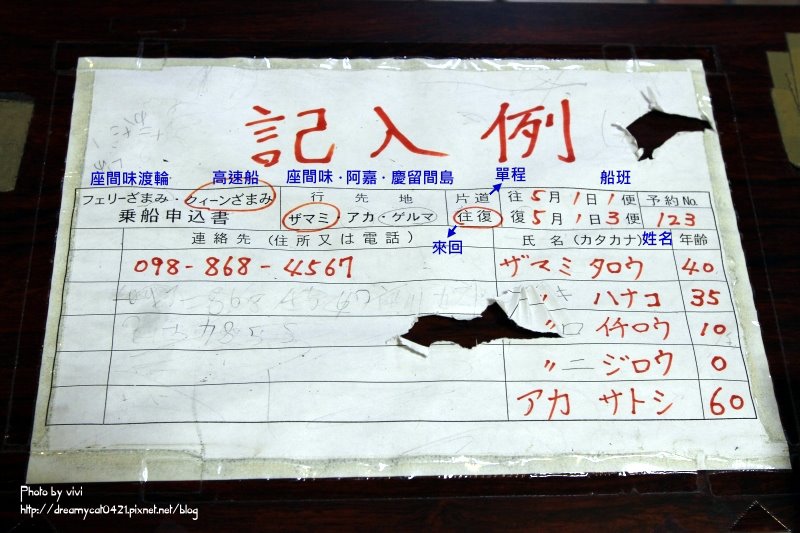 記入例
座間味渡輪 高速船 座間味・阿嘉・慶留間島 單程 船班
フェリーざまみ・クィーンざまみ 行先地 片道 往 5月1日1便 予約No.
乗船申込書 ザマミ・アカ・ゲルマ 往復 復 5月1日3便 123
來回
連絡先(住所又は電話) 氏名(カタカナ) 姓名 年齢
098-868-4567 ザマミ タロウ 40
〃 ハナコ 35
〃 イチロウ 10
〃 ジロウ 0
アカ サトシ 60
Photo by vivi
http://dreamycat0421.pixnet.net/blog